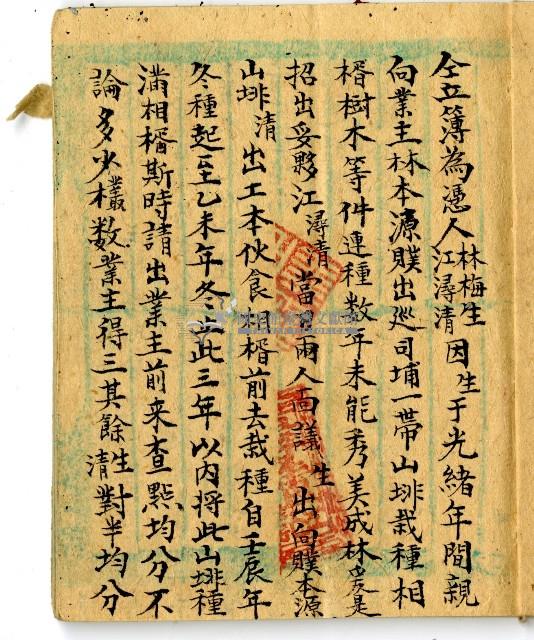 仝立簿為憑人林梅生江潯清因生于光緒年間親
向業主林本源贌出巡司埔一帶山排栽種相
榰樹木等件連種数年未能秀美成林爰是
招出妥夥江潯清當生兩人面議生出向贌本源
山排清出工本伙食相榰前去栽種自壬辰年
冬種起至乙未年冬止此三年以內將此山排種
滿相榰斯時請出業主前来查點均分不
論多少欉数業主得三其餘生清對半均分